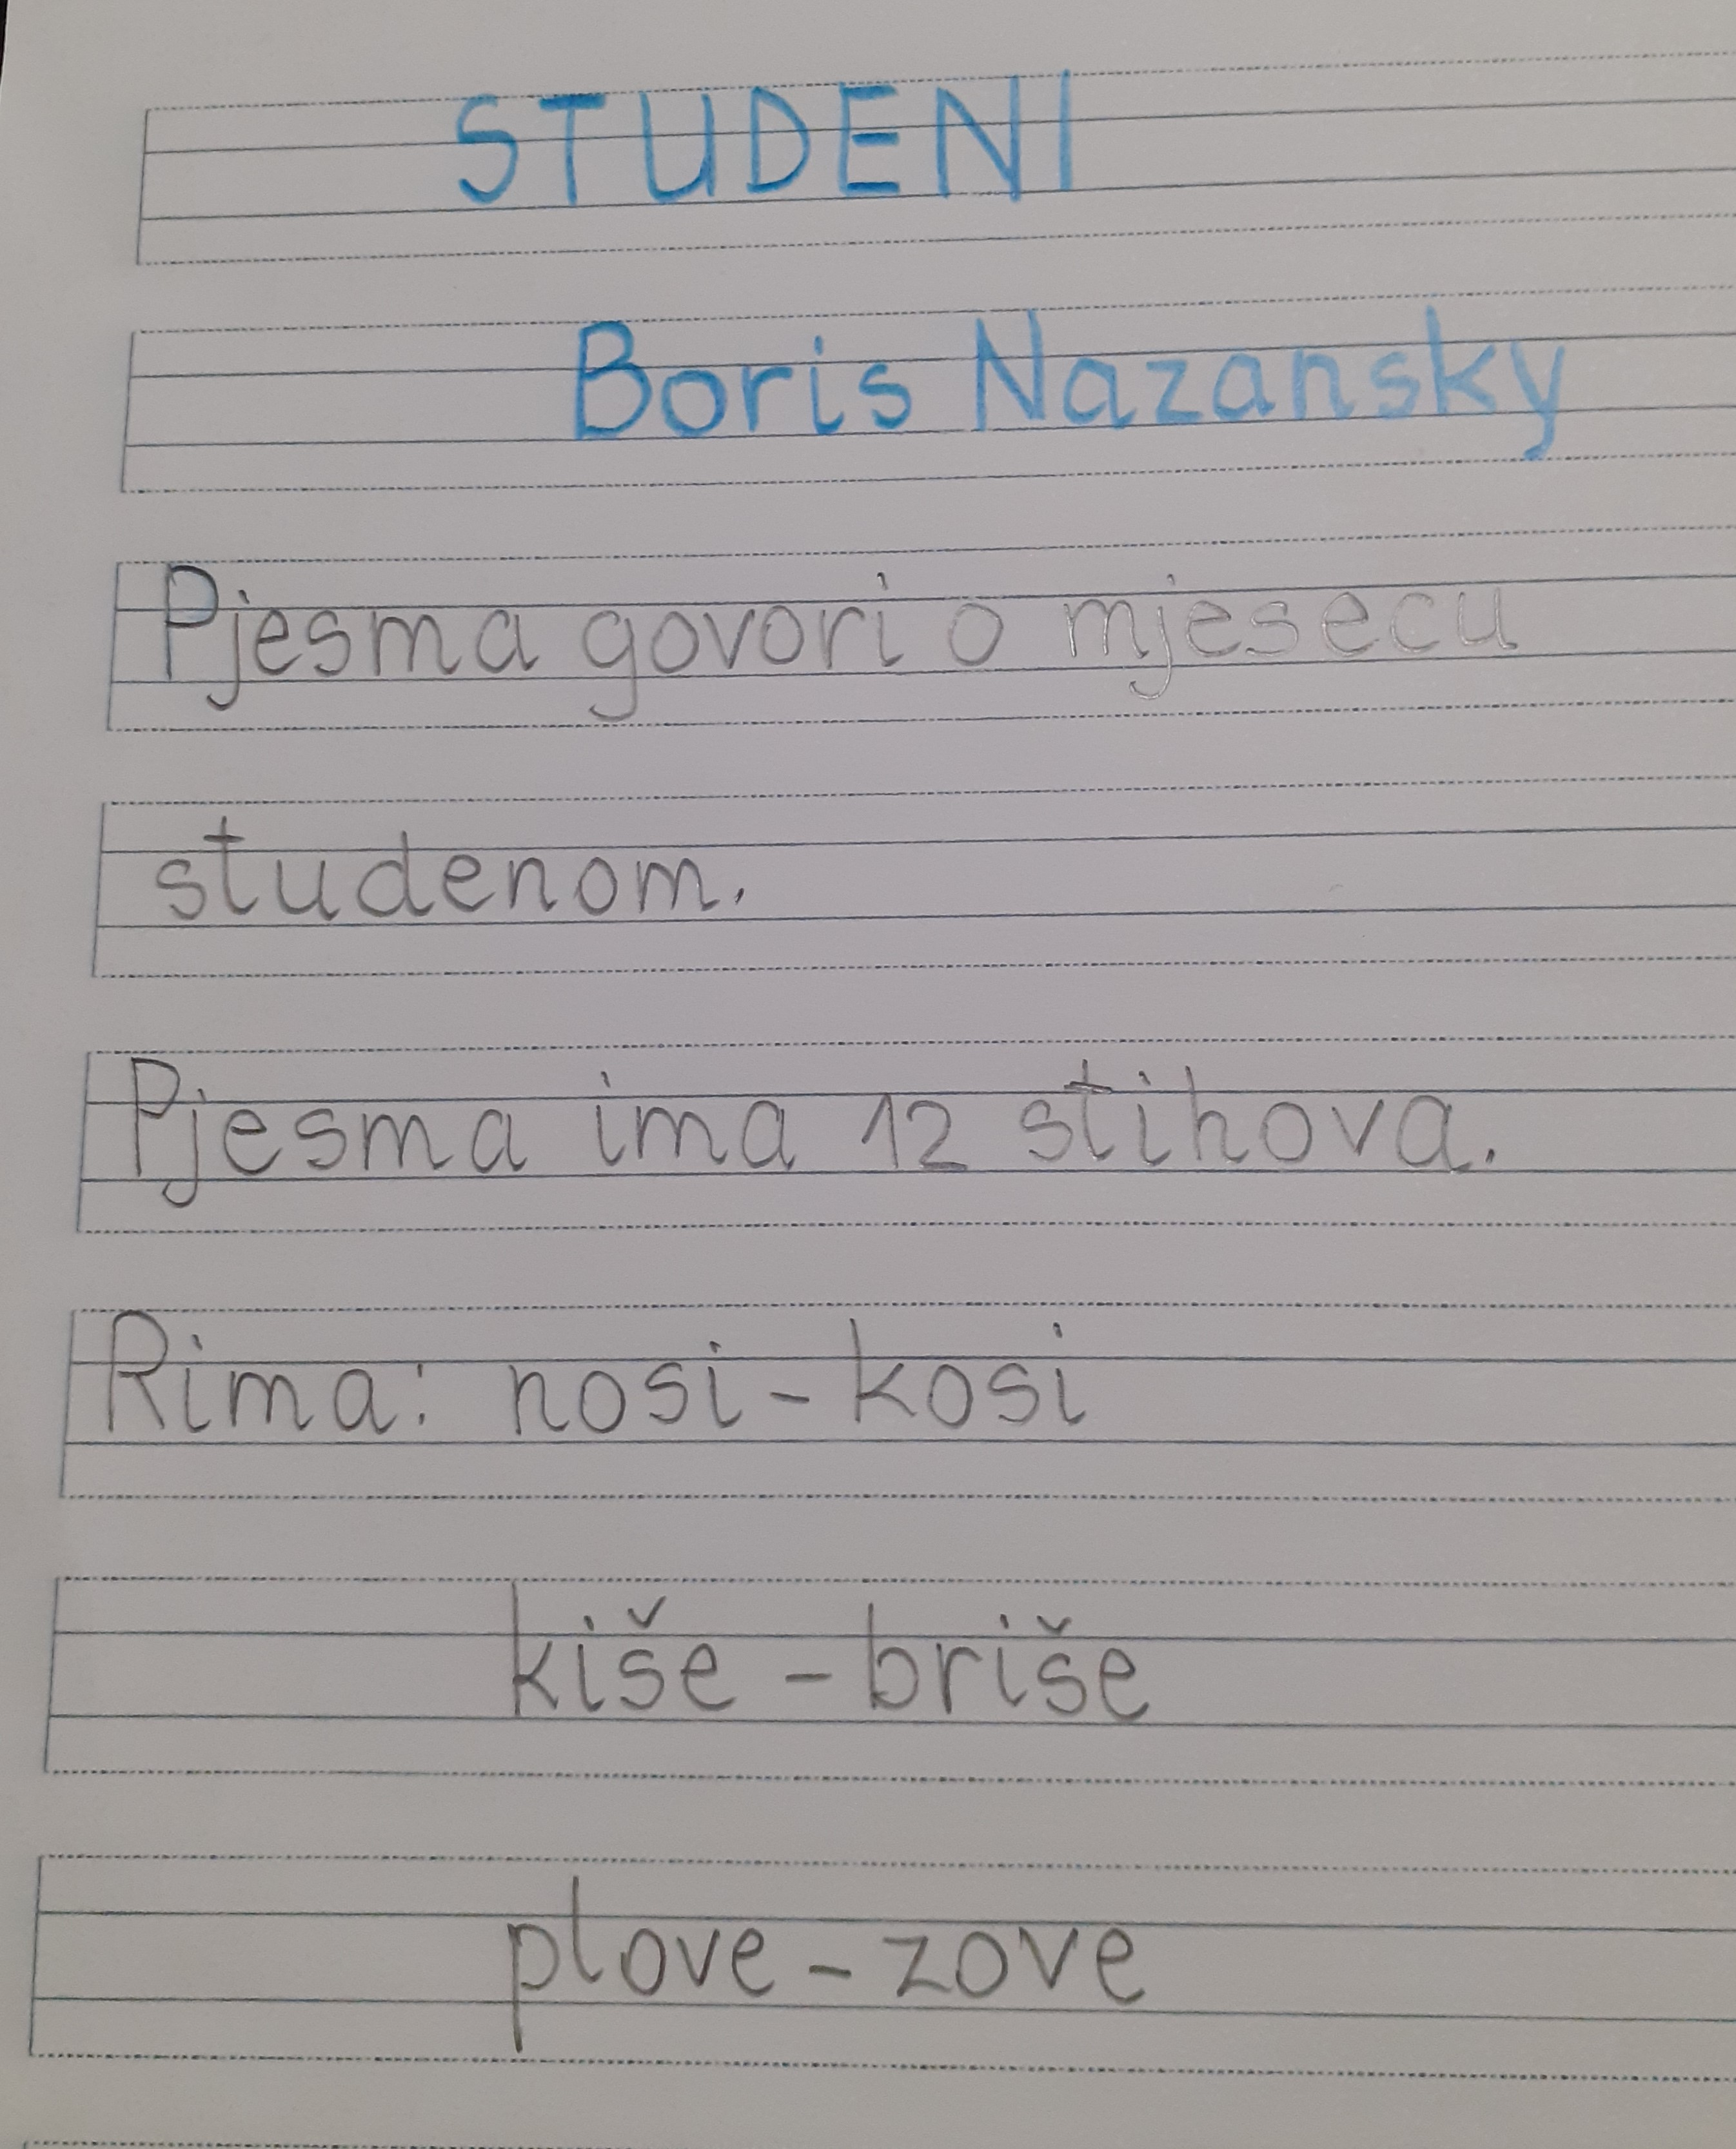 STUDENI
Boris Nazansky
Pjesma govori o mjesecu
studenom.
Pjesma ima 12 stihova.
Rima: nosi - kosi
kiše - briše
plove - zove